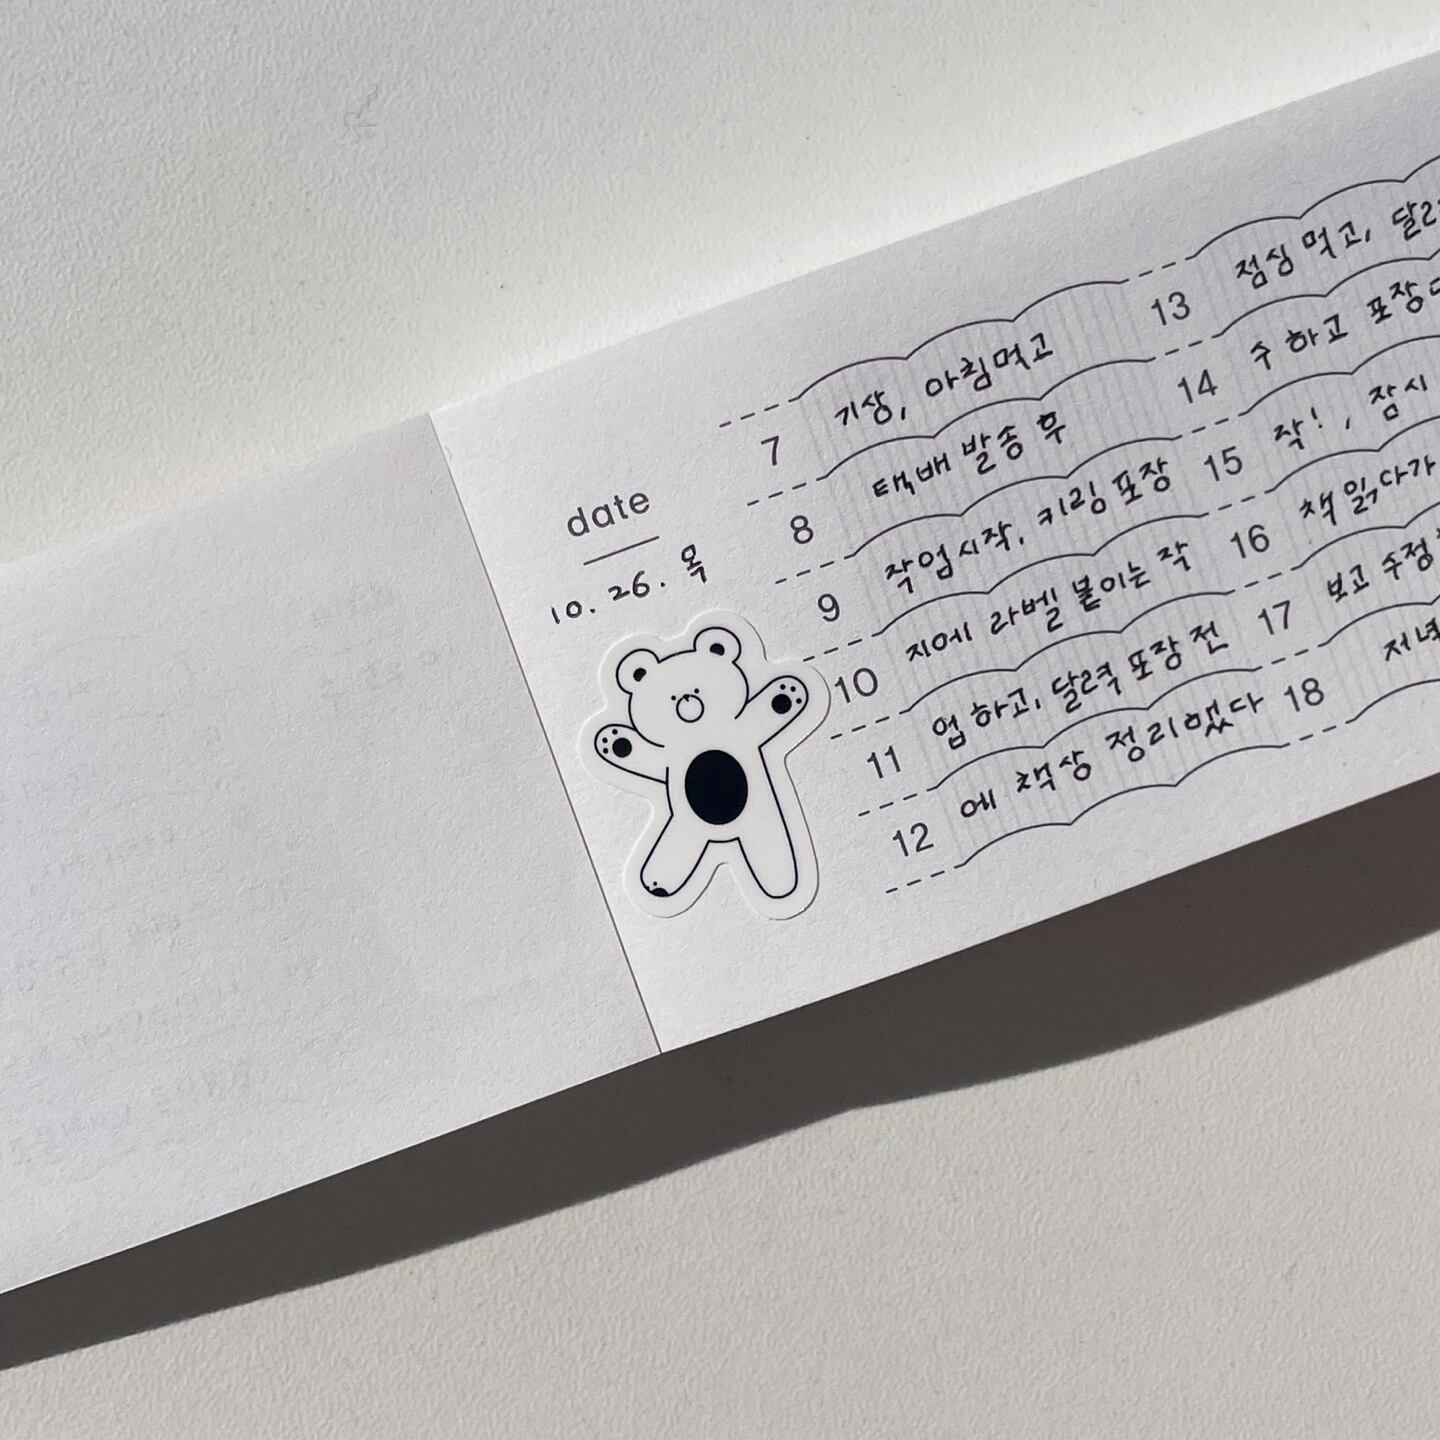 date
10. 26. 목
7 기상, 아침먹고
8 택배 발송 후
9 작업시작, 키링 포장
10 지에 라벨 붙이는 작
11 업 하고, 달력 포장 전
12 에 책상 정리했다
13 점심 먹고,
14 수 하고 포장
15 작!, 잠시
16 책 읽다가
17 보고 수정
18 저녁